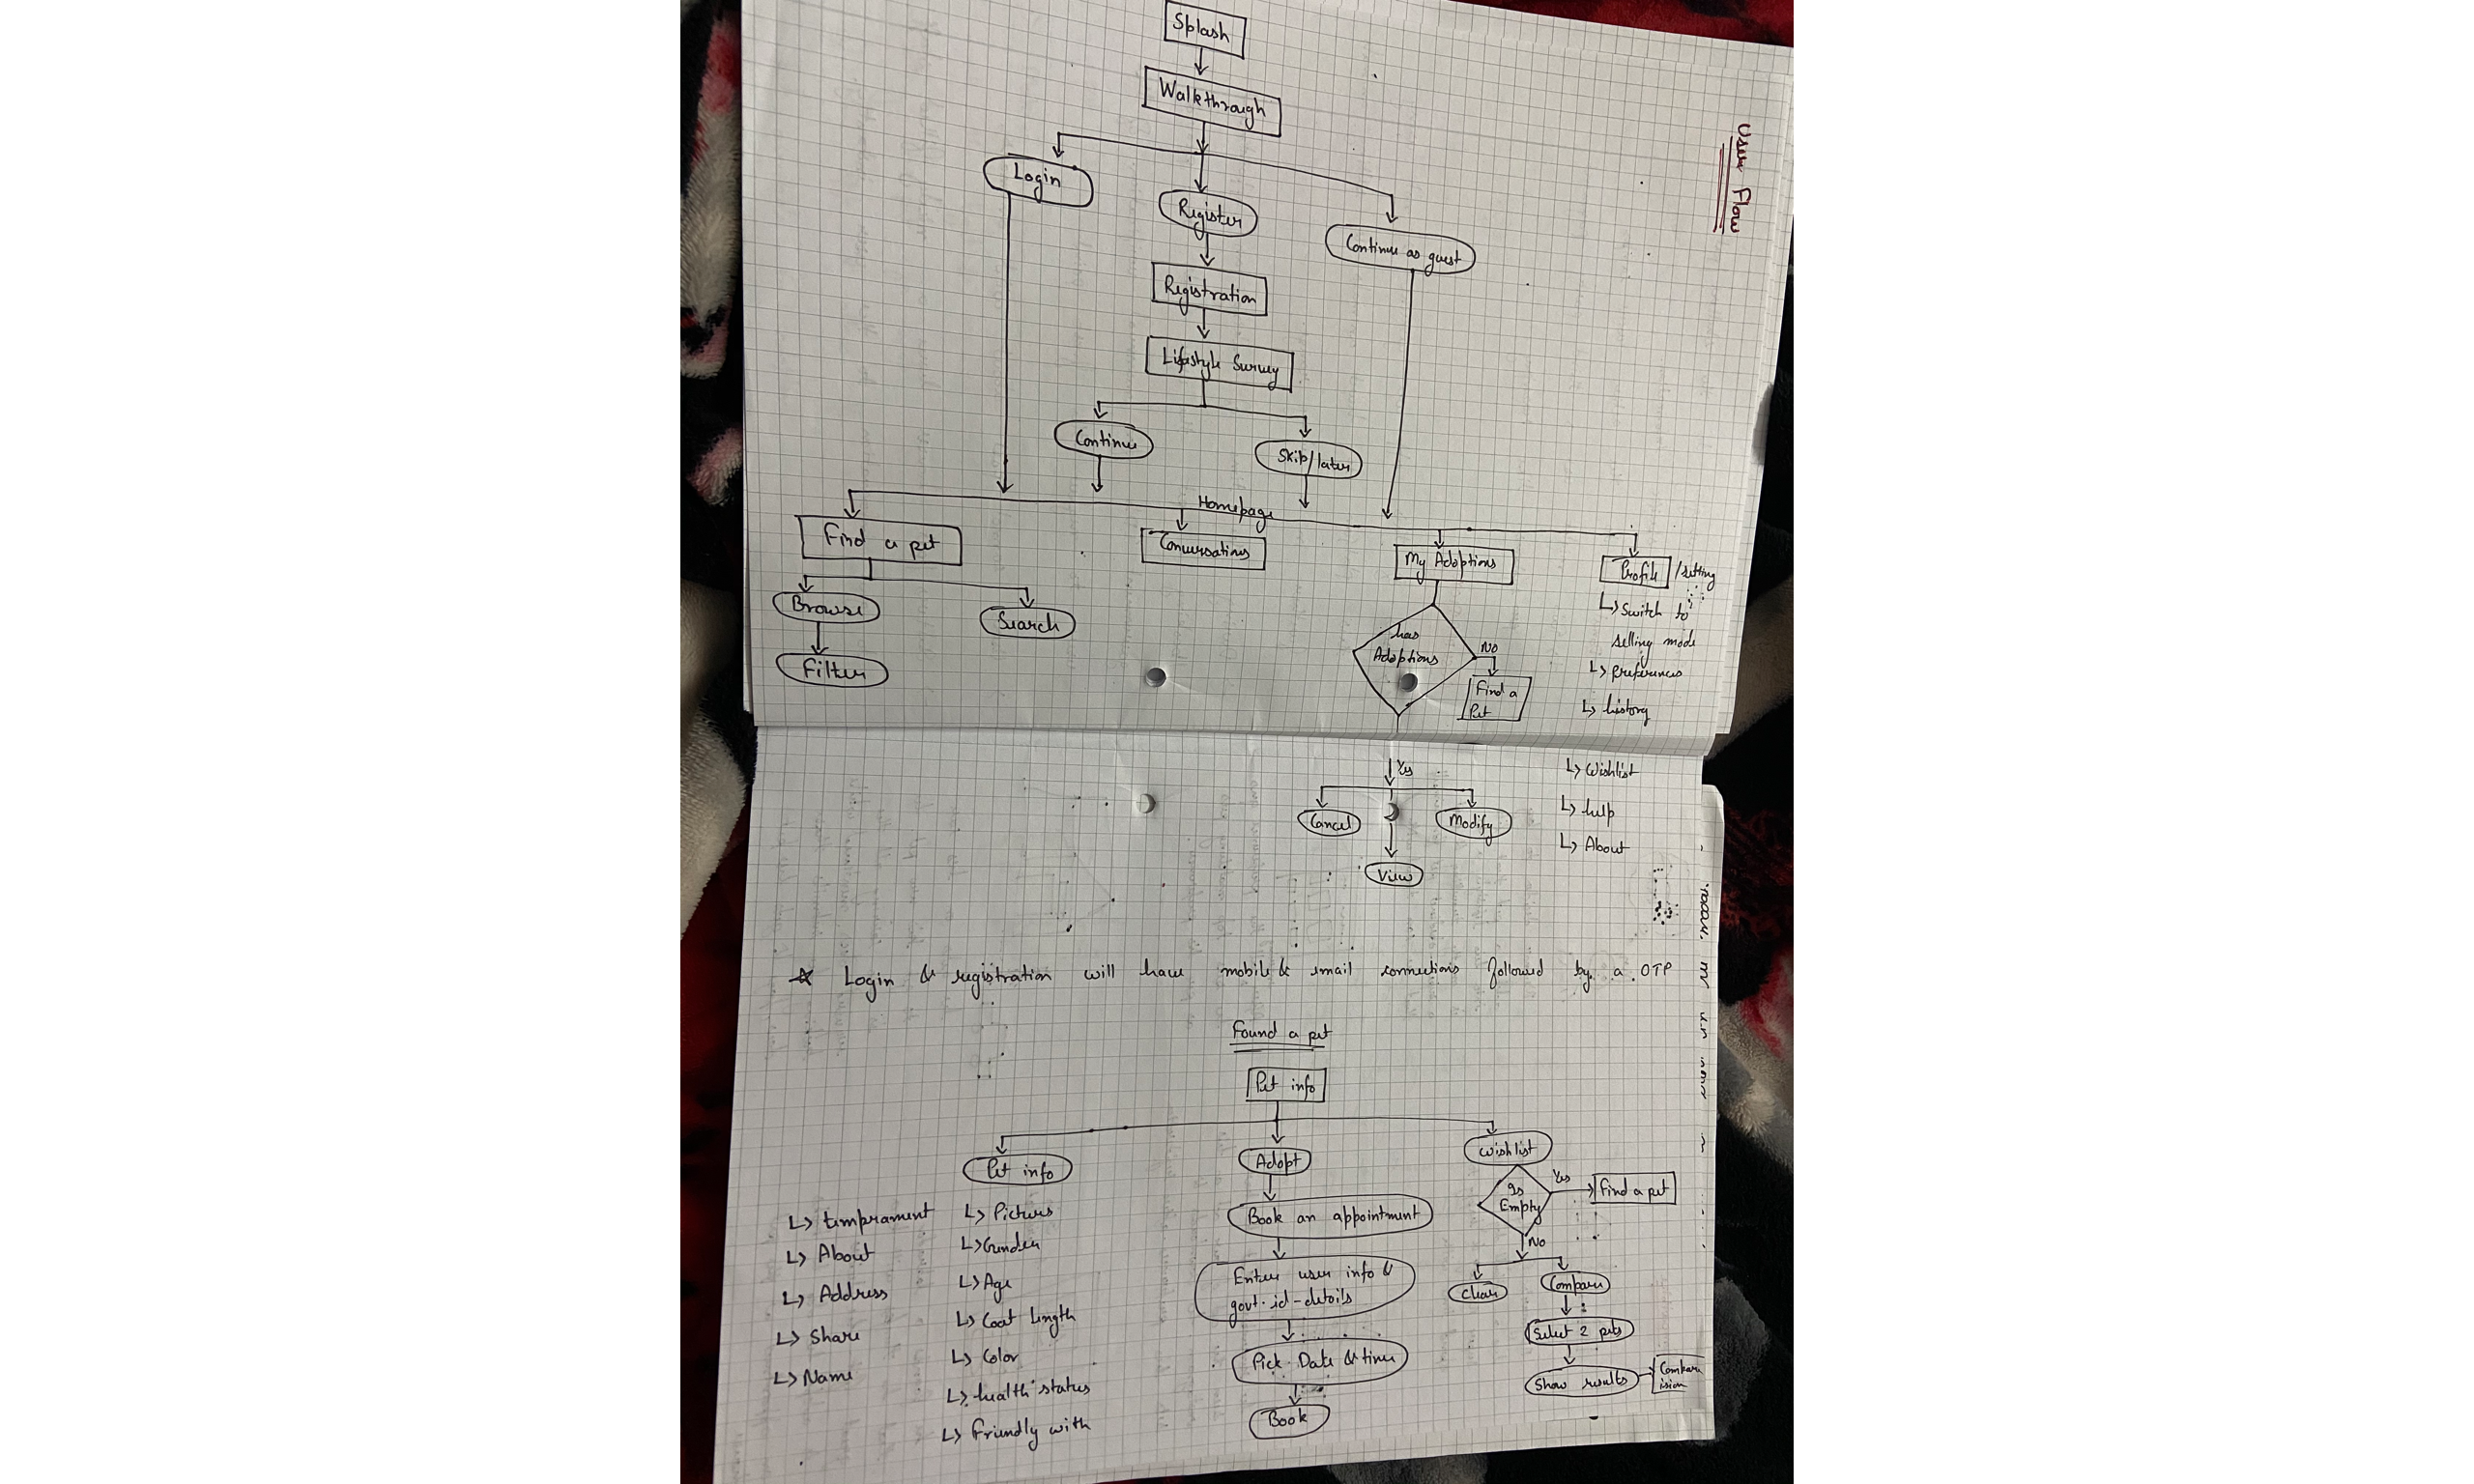 User Flow
Splash
Walkthrough
Login
Register
Continue as guest
Registration
Lifestyle Survey
Continue
Skip/later
Homepage
Find a pet
Conversations
My Adoptions
Profile /setting
Browse
Search
Filter
has
Adoptions
No
Find a
Pet
↳ Switch to
selling mode
↳ preferences
↳ history
Yes
Cancel
Modify
View
↳ Wishlist
↳ help
↳ About
☆ Login & registration will have mobile & email connections followed by a OTP
Found a pet
Pet info
Pet info
Adopt
Wishlist
↳ temprament
↳ About
↳ Address
↳ Share
↳ Name
↳ Pictures
↳ Gender
↳ Age
↳ Coat length
↳ Color
↳ health status
↳ Friendly with
Book an appointment
Enter user info &
govt. id-details
Pick Date & time
Book
Is
Empty
Yes
Find a pet
No
Clear
Compare
Select 2 pets
Show results
Compare
ision